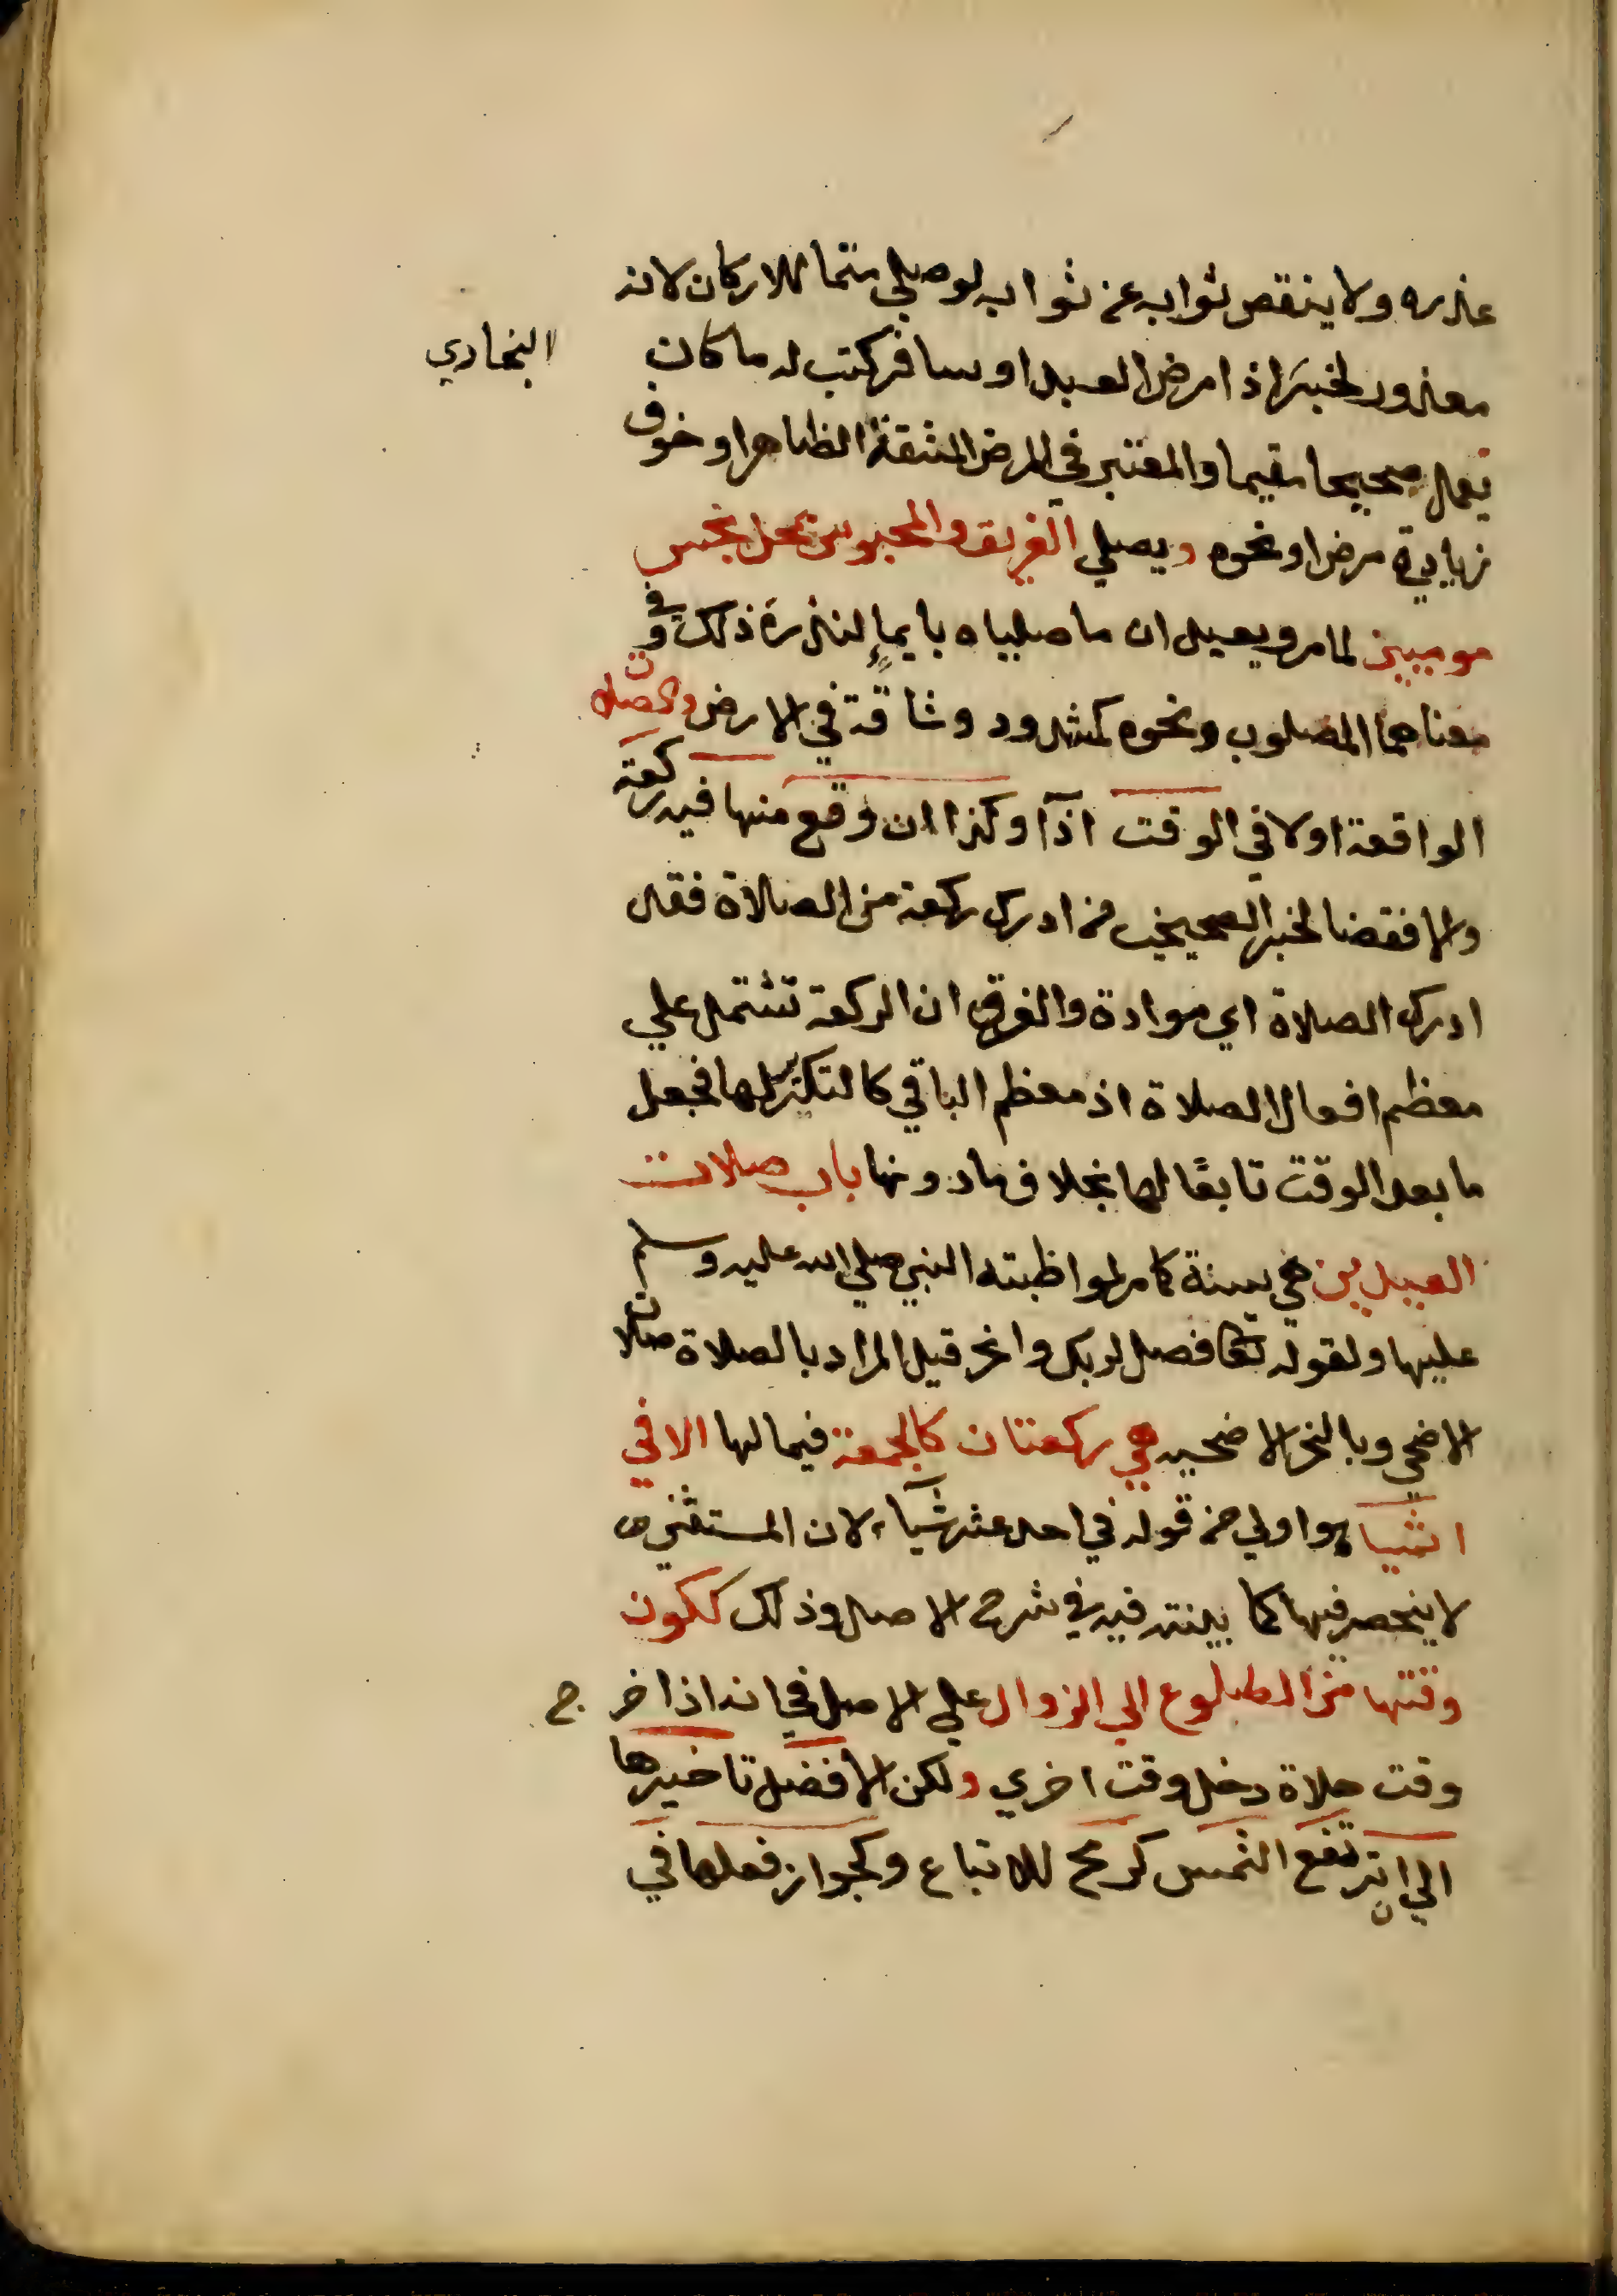 عذره ولا ينقص ثوابه عن ثوابه لو صلي متمما للاركان لانه
معذور لخبر اذا مرض العبد او سافر كتب له ما كان
البخاري
يعمل صحيحا مقيما والمعتبر في المرض المشقة الظاهرا وخوف
زيادة مرض او نحوه ويصلي الغريق والمحبوس بمحل نجس
موميين لما مر ويعيدان ما صلياه بايماء لندرة ذلك وفي
معناهما المصلوب ونحوه كمشدود وثاقة في الارض والصلاة
الواقعة اولا في الوقت اداآ وكذا ان وقع منها فيه ركعة
والا فقضا لخبر الصحيحين من ادرك ركعة من الصلاة فقد
ادرك الصلاة اي موادة والفرق ان الركعة تشتمل علي
معظم افعال الصلاة اذ معظم الباقي كالتكرير لها فجعل
ما بعد الوقت تابعًا لها بخلاف ما دونها باب صلات
العيدين هي سنة كما مر لمواظبته النبي صلي الله عليه وسلم
عليها ولقوله تعا فصل لربك وانحر قيل المراد بالصلاة صلاة
الاضحي وبالنحر الاضحيه هي ركعتان كالجمعة فيما لها الا في
اشيا هو اولي من قوله في احد عشر شيا لان المستثني
لا ينحصر فيها كما بينته فيه في شرح الاصل وذلك ككون
وقتها من الطلوع الي الزوال علي الاصل في انه اذا خرج
وقت صلاة دخل وقت اخري ولكن الافضل تاخيرها
الي ان ترتفع الشمس كرمح للاتباع وكجواز فعلها في